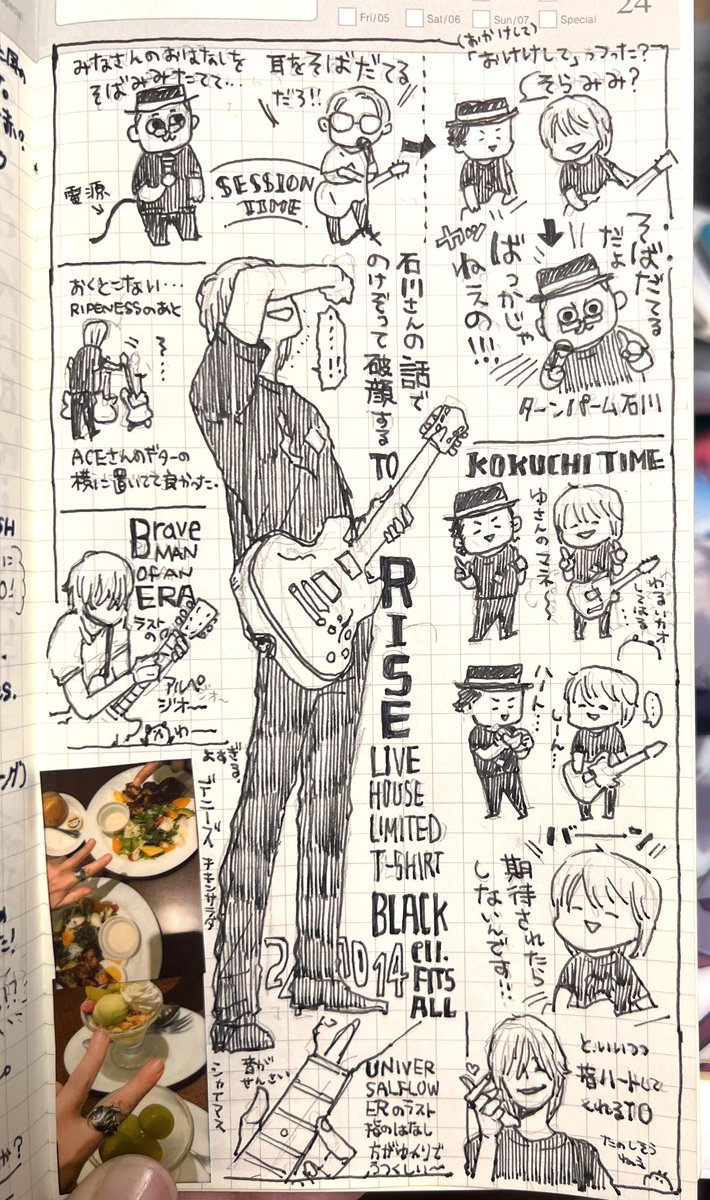 Fri/05
Sat/06
Sun/07
Special
24
みなさんのおはなしを
そばみみたてて…
耳をそばだてる
だろ!!
電源
SESSION
TIME
(おかけして)
「おけけして」っつった?
そらみみ?
そばだてる
だよ
ばっかじゃ
ねえの!!!
ターンパーム石川
おくとこない…
RIPENESSのあと
そ…
ACEさんのギターの
横に置いてて良かった.
石川さんの話で
のけぞって破顔する
TO
……!!
Brave
MAN
OF AN
ERA
ラストの
アルペ
ジオ〜
RISE
LIVE
HOUSE
LIMITED
T-SHIRT
BLACK
FITS
ALL
KOKUCHI TIME
ゆさんのマネ〜
ゆるいカオ
ハート…
しーん…
期待されたら
しないんです…
と、いいつつ
指ハートして
くれるTO
デニーズ
チキンサラダ
シャインマス
音が
せんさい
UNIVER
SALFLOW
ERのラスト
指のはなし
方がゆっくりで
うつくしい〜